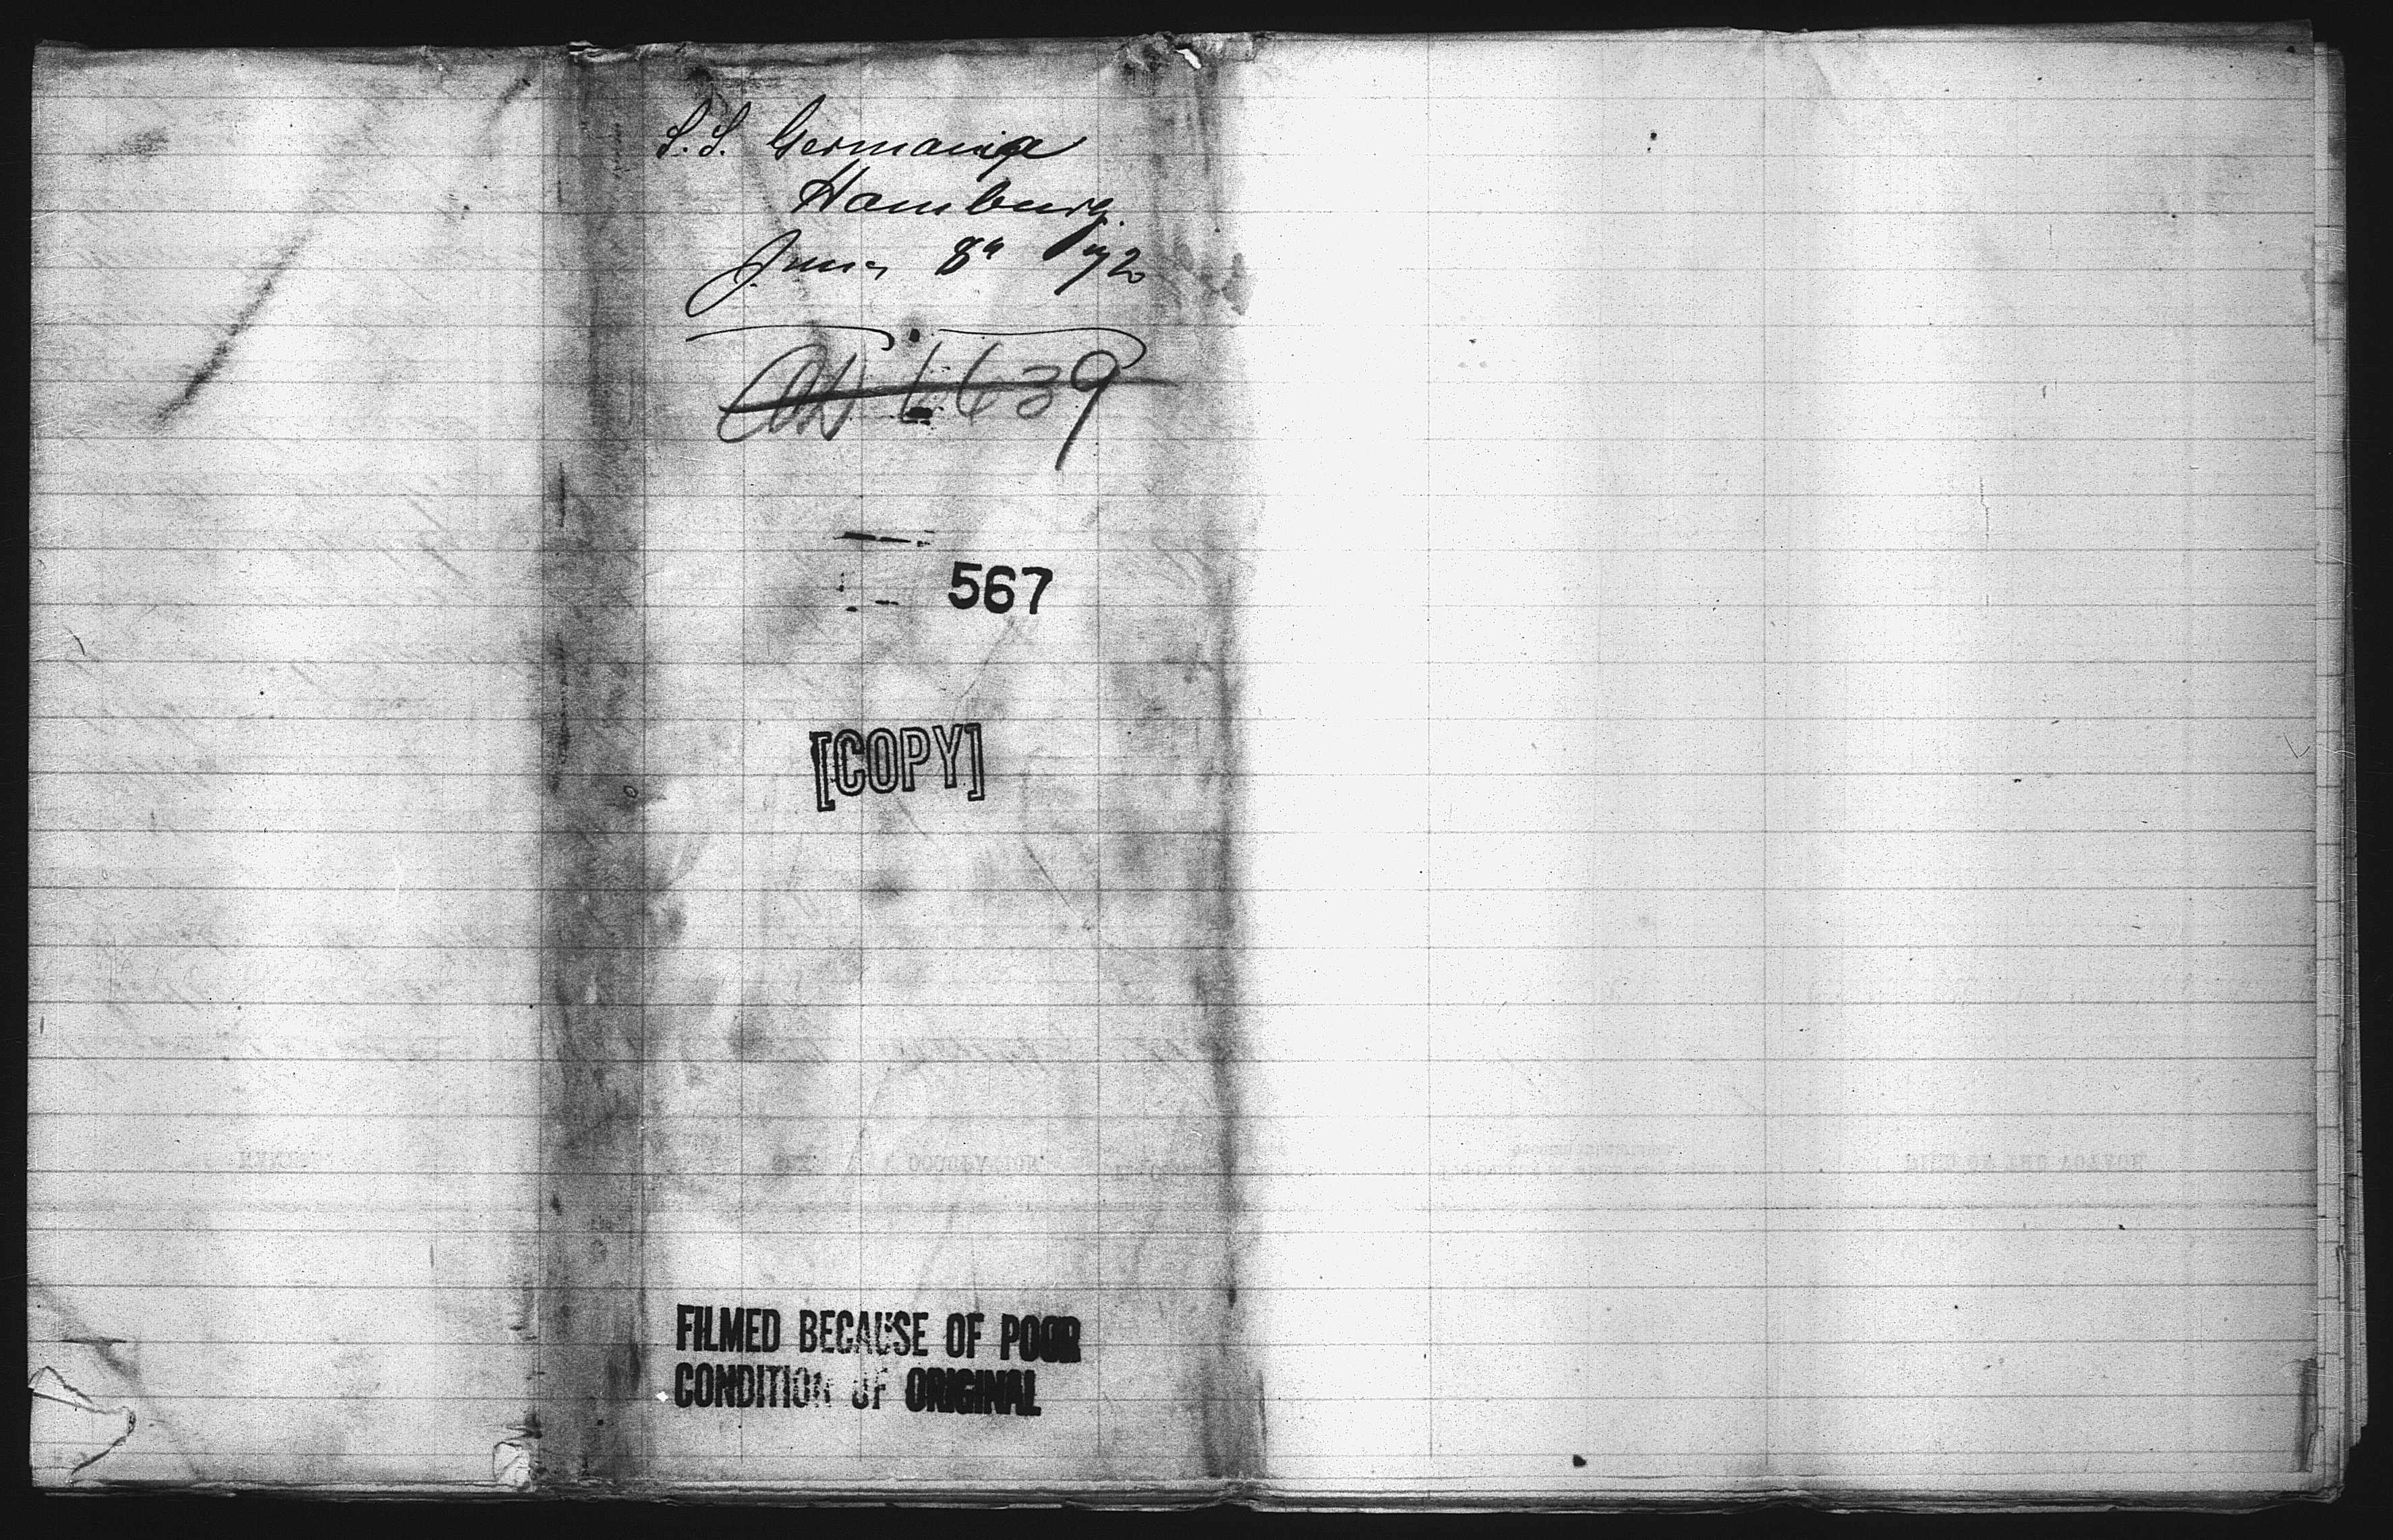 S.S. Germania
Hamburg
June 8" 72
6639
567
[COPY]
FILMED BECAUSE OF POOR
CONDITION OF ORIGINAL